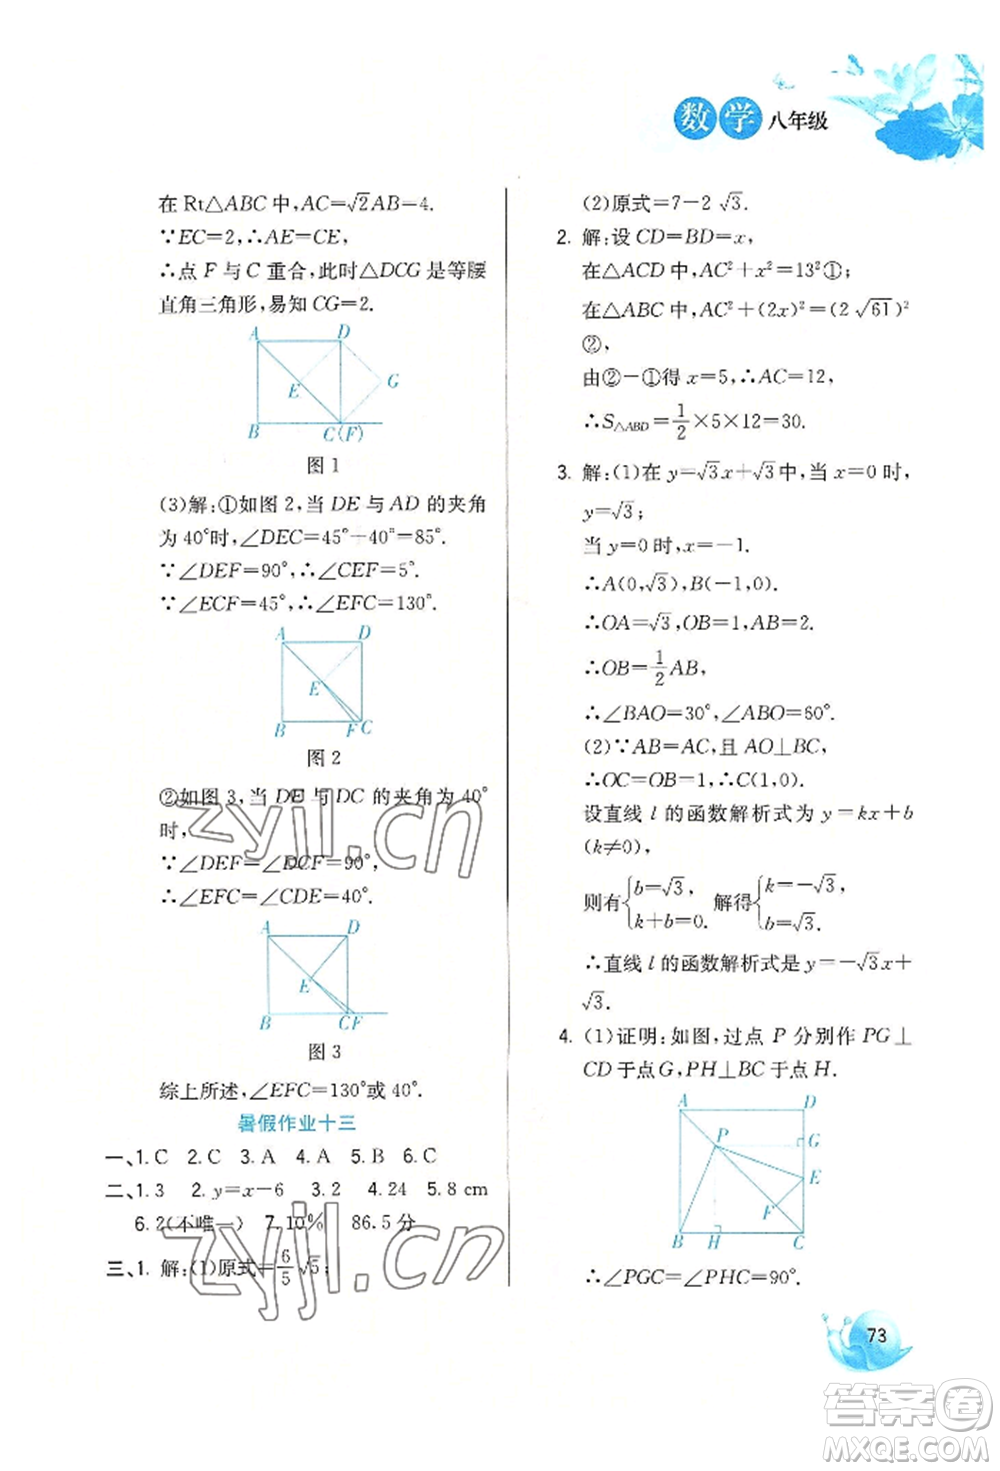 数学 八年级
在 Rt△ABC 中,AC=√2AB=4.
∵EC=2,∴AE=CE,
∴点 F 与 C 重合,此时△DCG 是等腰
直角三角形,易知 CG=2.
A D
E G
B C(F)
图 1
(3)解:①如图 2,当 DE 与 AD 的夹角
为 40°时,∠DEC=45°+40°=85°.
∵∠DEF=90°,∴∠CEF=5°.
∵∠ECF=45°,∴∠EFC=130°.
A D
E
B F C
图 2
②如图 3,当 DE 与 DC 的夹角为 40°
时,
∵∠DEF=∠DCF=90°,
∴∠EFC=∠CDE=40°.
A D
E
B C F
图 3
综上所述,∠EFC=130°或 40°.
暑假作业十三
一、1. C 2. C 3. A 4. A 5. B 6. C
二、1. 3 2. y=x−6 3. 2 4. 24 5. 8 cm
6. 2(不唯一) 7. 10% 86.5 分
三、1. 解:(1)原式=6/5√5;
(2)原式=7−2√3.
2. 解:设 CD=BD=x,
在△ACD 中,AC²+x²=13²①;
在△ABC 中,AC²+(2x)²=(2√61)²
②,
由②−①得 x=5,∴AC=12,
∴S△ABD=1/2×5×12=30.
3. 解:(1)在 y=√3x+√3中,当 x=0 时,
y=√3;
当 y=0 时,x=−1.
∴A(0,√3),B(−1,0).
∴OA=√3,OB=1,AB=2.
∴OB=1/2AB,
∴∠BAO=30°,∠ABO=60°.
(2)∵AB=AC,且 AO⊥BC,
∴OC=OB=1,∴C(1,0).
设直线 l 的函数解析式为 y=kx+b
(k≠0),
则有{b=√3, k+b=0. 解得{k=−√3, b=√3.
∴直线 l 的函数解析式是 y=−√3x+
√3.
4. (1)证明:如图,过点 P 分别作 PG⊥
CD于点G,PH⊥BC于点H.
A D
P G
E
F
B H C
∴∠PGC=∠PHC=90°.
73
zyjl.cn
zyjl.cn
答案圈
MXQE.COM